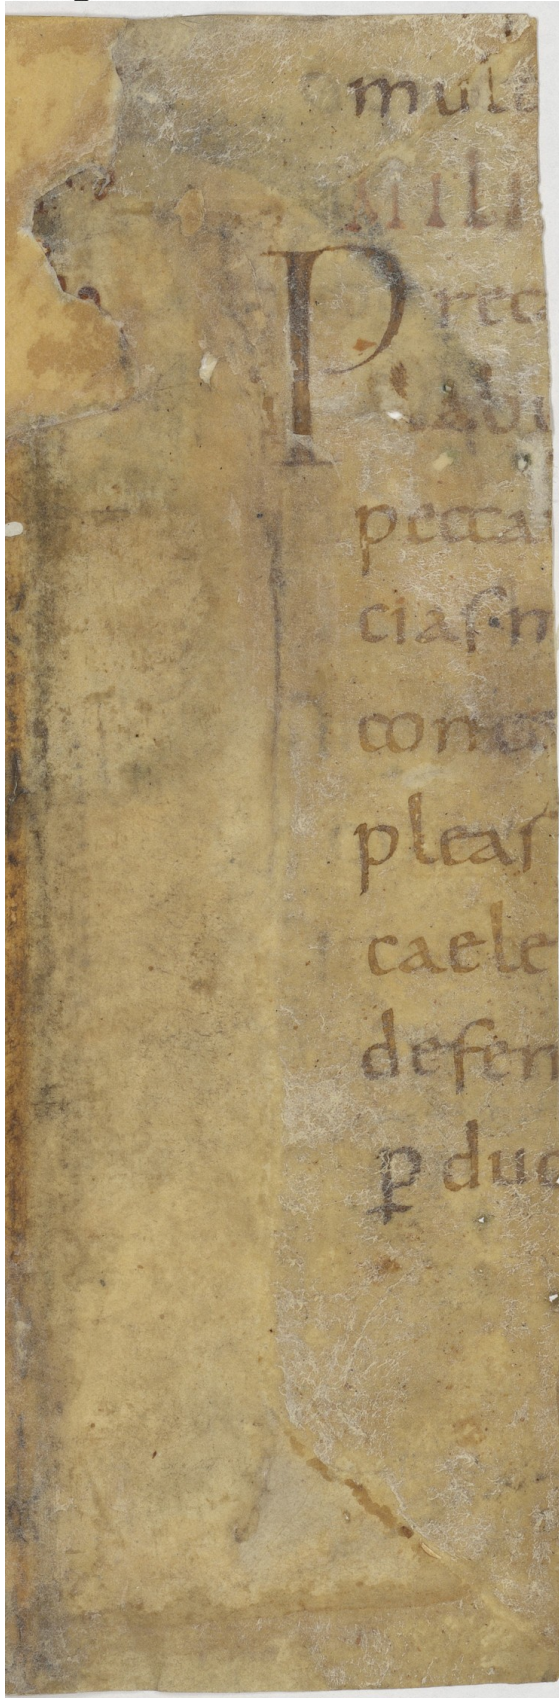 mult
P rec
pecca
cias·n
com
pleas
caele
defen
ꝑduc